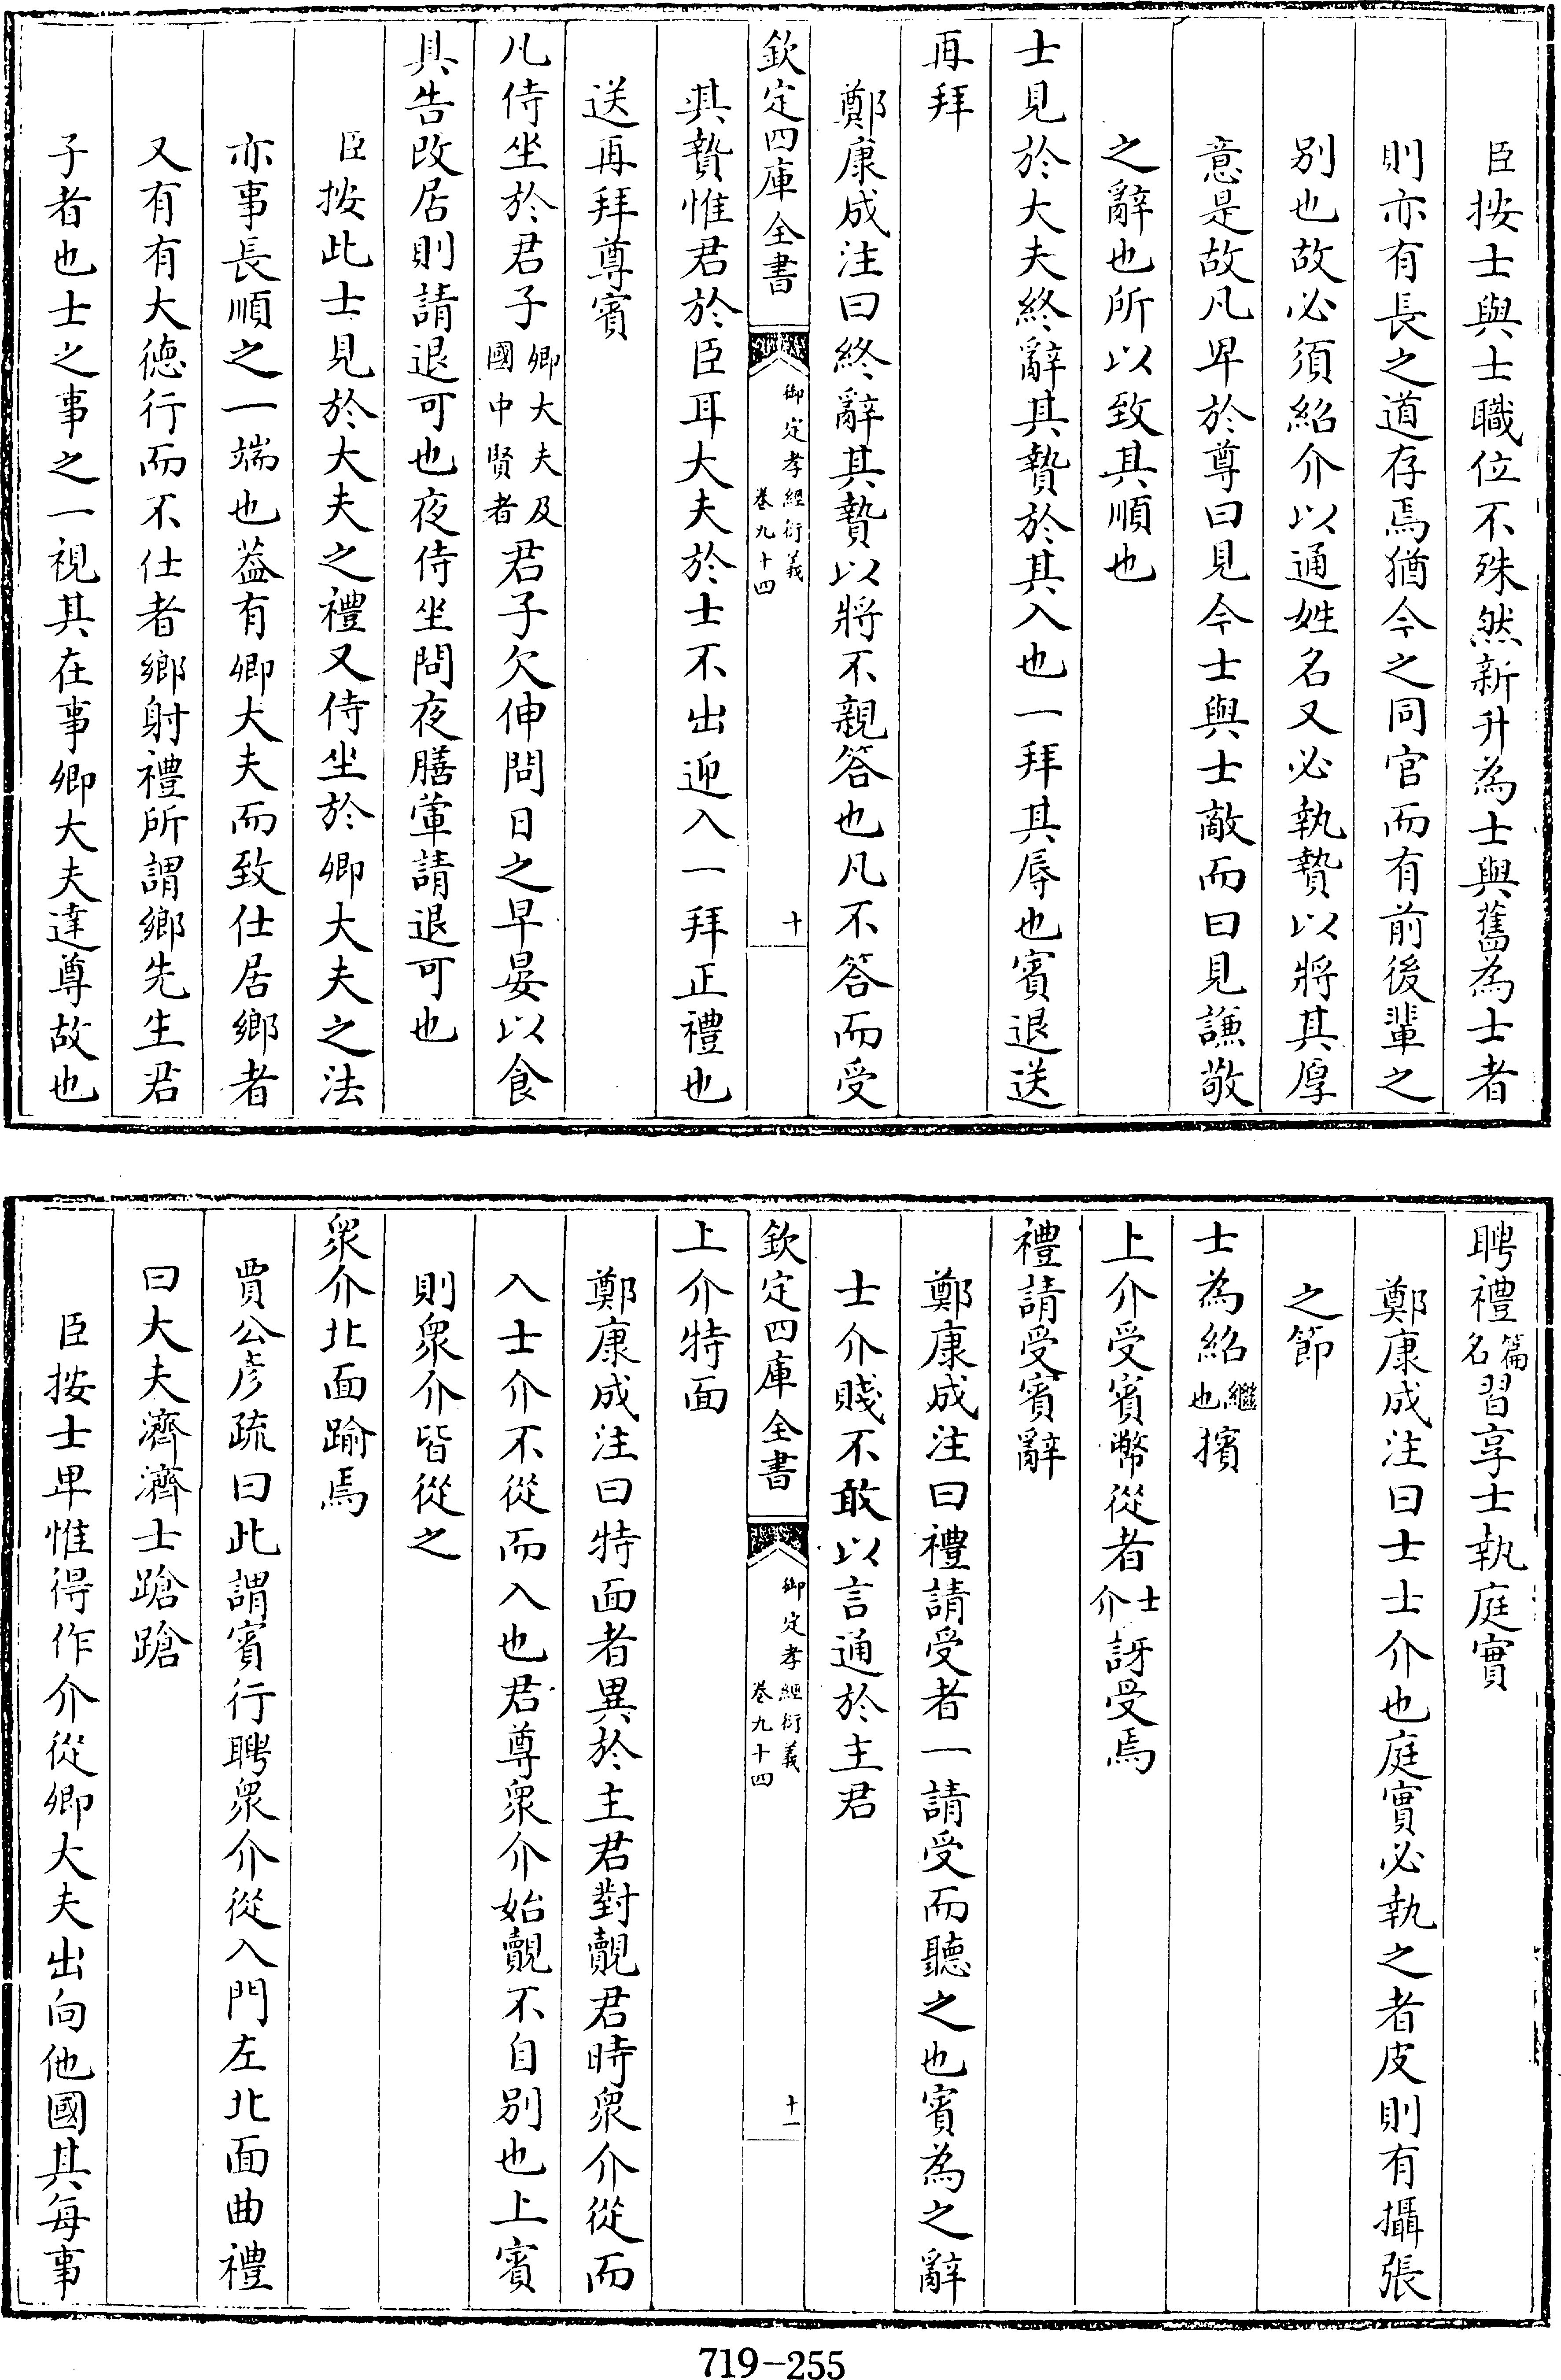 臣按士與士職位不殊然新升為士與舊為士者
則亦有長之道存焉猶今之同官而有前後輩之
别也故必須紹介以通姓名又必執贄以將其厚
意是故凡卑於尊曰見今士與士敵而曰見謙敬
之辭也所以致其順也
士見於大夫終辭其贄於其入也一拜其辱也賓退送
再拜
鄭康成注曰終辭其贄以將不親答也凡不答而受
欽定四庫全書
御定孝經衍義
卷九十四
十
其贄惟君於臣耳大夫於士不出迎入一拜正禮也
送再拜尊賓
凡侍坐於君子卿大夫及國中賢者君子欠伸問日之早晏以食
具告改居則請退可也夜侍坐問夜膳葷請退可也
臣按此士見於大夫之禮又侍坐於卿大夫之法
亦事長順之一端也葢有卿大夫而致仕居鄉者
又有有大德行而不仕者鄉射禮所謂鄉先生君
子者也士之事之一視其在事卿大夫達尊故也
聘禮篇名習享士執庭實
鄭康成注曰士士介也庭實必執之者皮則有攝張
之節
士為紹繼也擯
上介受賓幣從者士介訝受焉
禮請受賓辭
鄭康成注曰禮請受者一請受而聽之也賓為之辭
士介賤不敢以言通於主君
欽定四庫全書
御定孝經衍義
卷九十四
十一
上介特面
鄭康成注曰特面者異於主君對覿君時衆介從而
入士介不從而入也君尊衆介始覿不自别也上賓
則衆介皆從之
衆介北面踰焉
賈公彦疏曰此謂賓行聘衆介從入門左北面曲禮
曰大夫濟濟士蹌蹌
臣按士卑惟得作介從卿大夫出向他國其每事
719-255